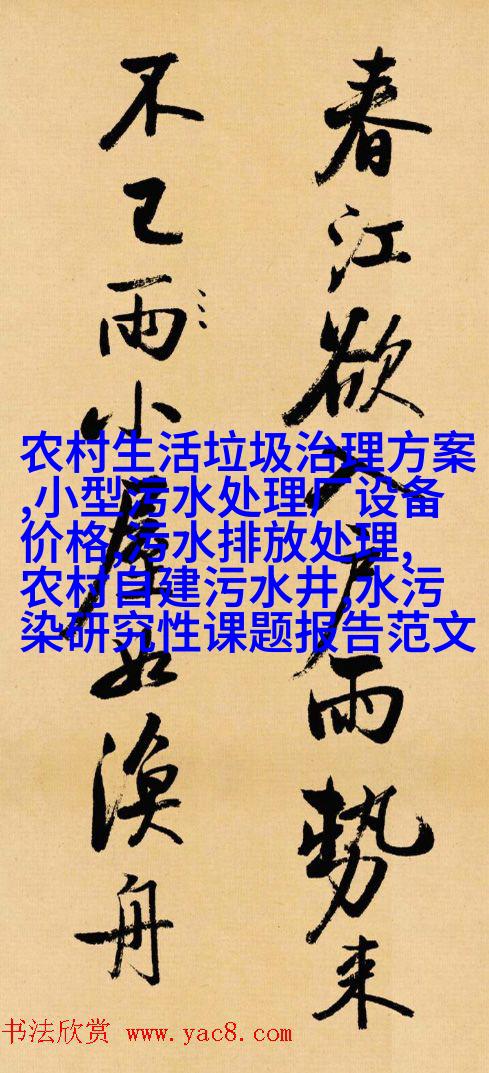 春江欲入戶雨勢来
不已雨小屋如漁舟
农村生活垃圾治理方案
,小型污水处理厂设备
价格,污水排放处理,
农村自建污水井,水污
染研究性课题报告范文
书法欣赏 www.yac8.com